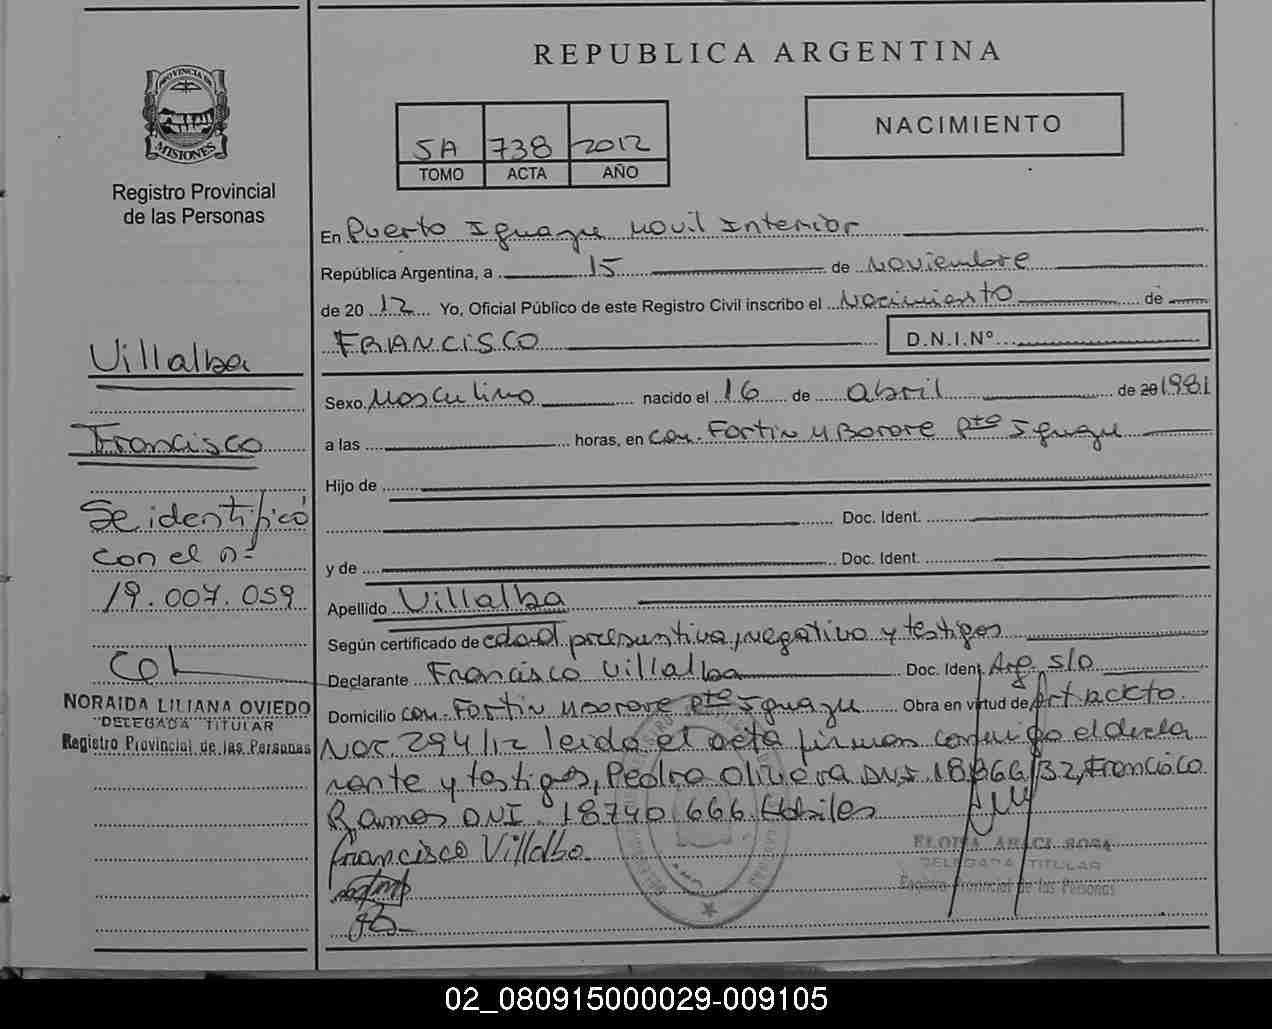 REPUBLICA ARGENTINA
PROVINCIA DE
MISIONES
Registro Provincial
de las Personas
5A 738 2012
TOMO ACTA AÑO
NACIMIENTO
En Puerto Iguazu Movil Interior
República Argentina, a 15 de Noviembre
de 2012 Yo, Oficial Público de este Registro Civil inscribo el Nacimiento de
FRANCISCO D.N.I.Nº
Sexo Masculino nacido el 16 de abril de 20 1981
a las horas, en com. Fortin M Borore Pto Iguazu
Hijo de
Doc. Ident.
y de Doc. Ident.
Apellido Villalba
Según certificado de edad presuntiva, negativo y testigos
Declarante Francisco Villalba Doc. Ident. Arg. S/D
Domicilio com. Fortin M Borore Pto Iguazu Obra en virtud de
294/12 leida el acta firman conmigo el decla
rante y testigos, Pedro Olivera DNI 18.866.132, Francisco
Ramos DNI 18740.666 Habiles
Francisco Villalba.
ELOISA ARACI ROSA
DELEGADA TITULAR
Registro Provincial de las Personas
Villalba
Francisco
Se identificó
con el nº
19.007.059
NORAIDA LILIANA OVIEDO
DELEGADA TITULAR
Registro Provincial de las Personas
02_080915000029-009105